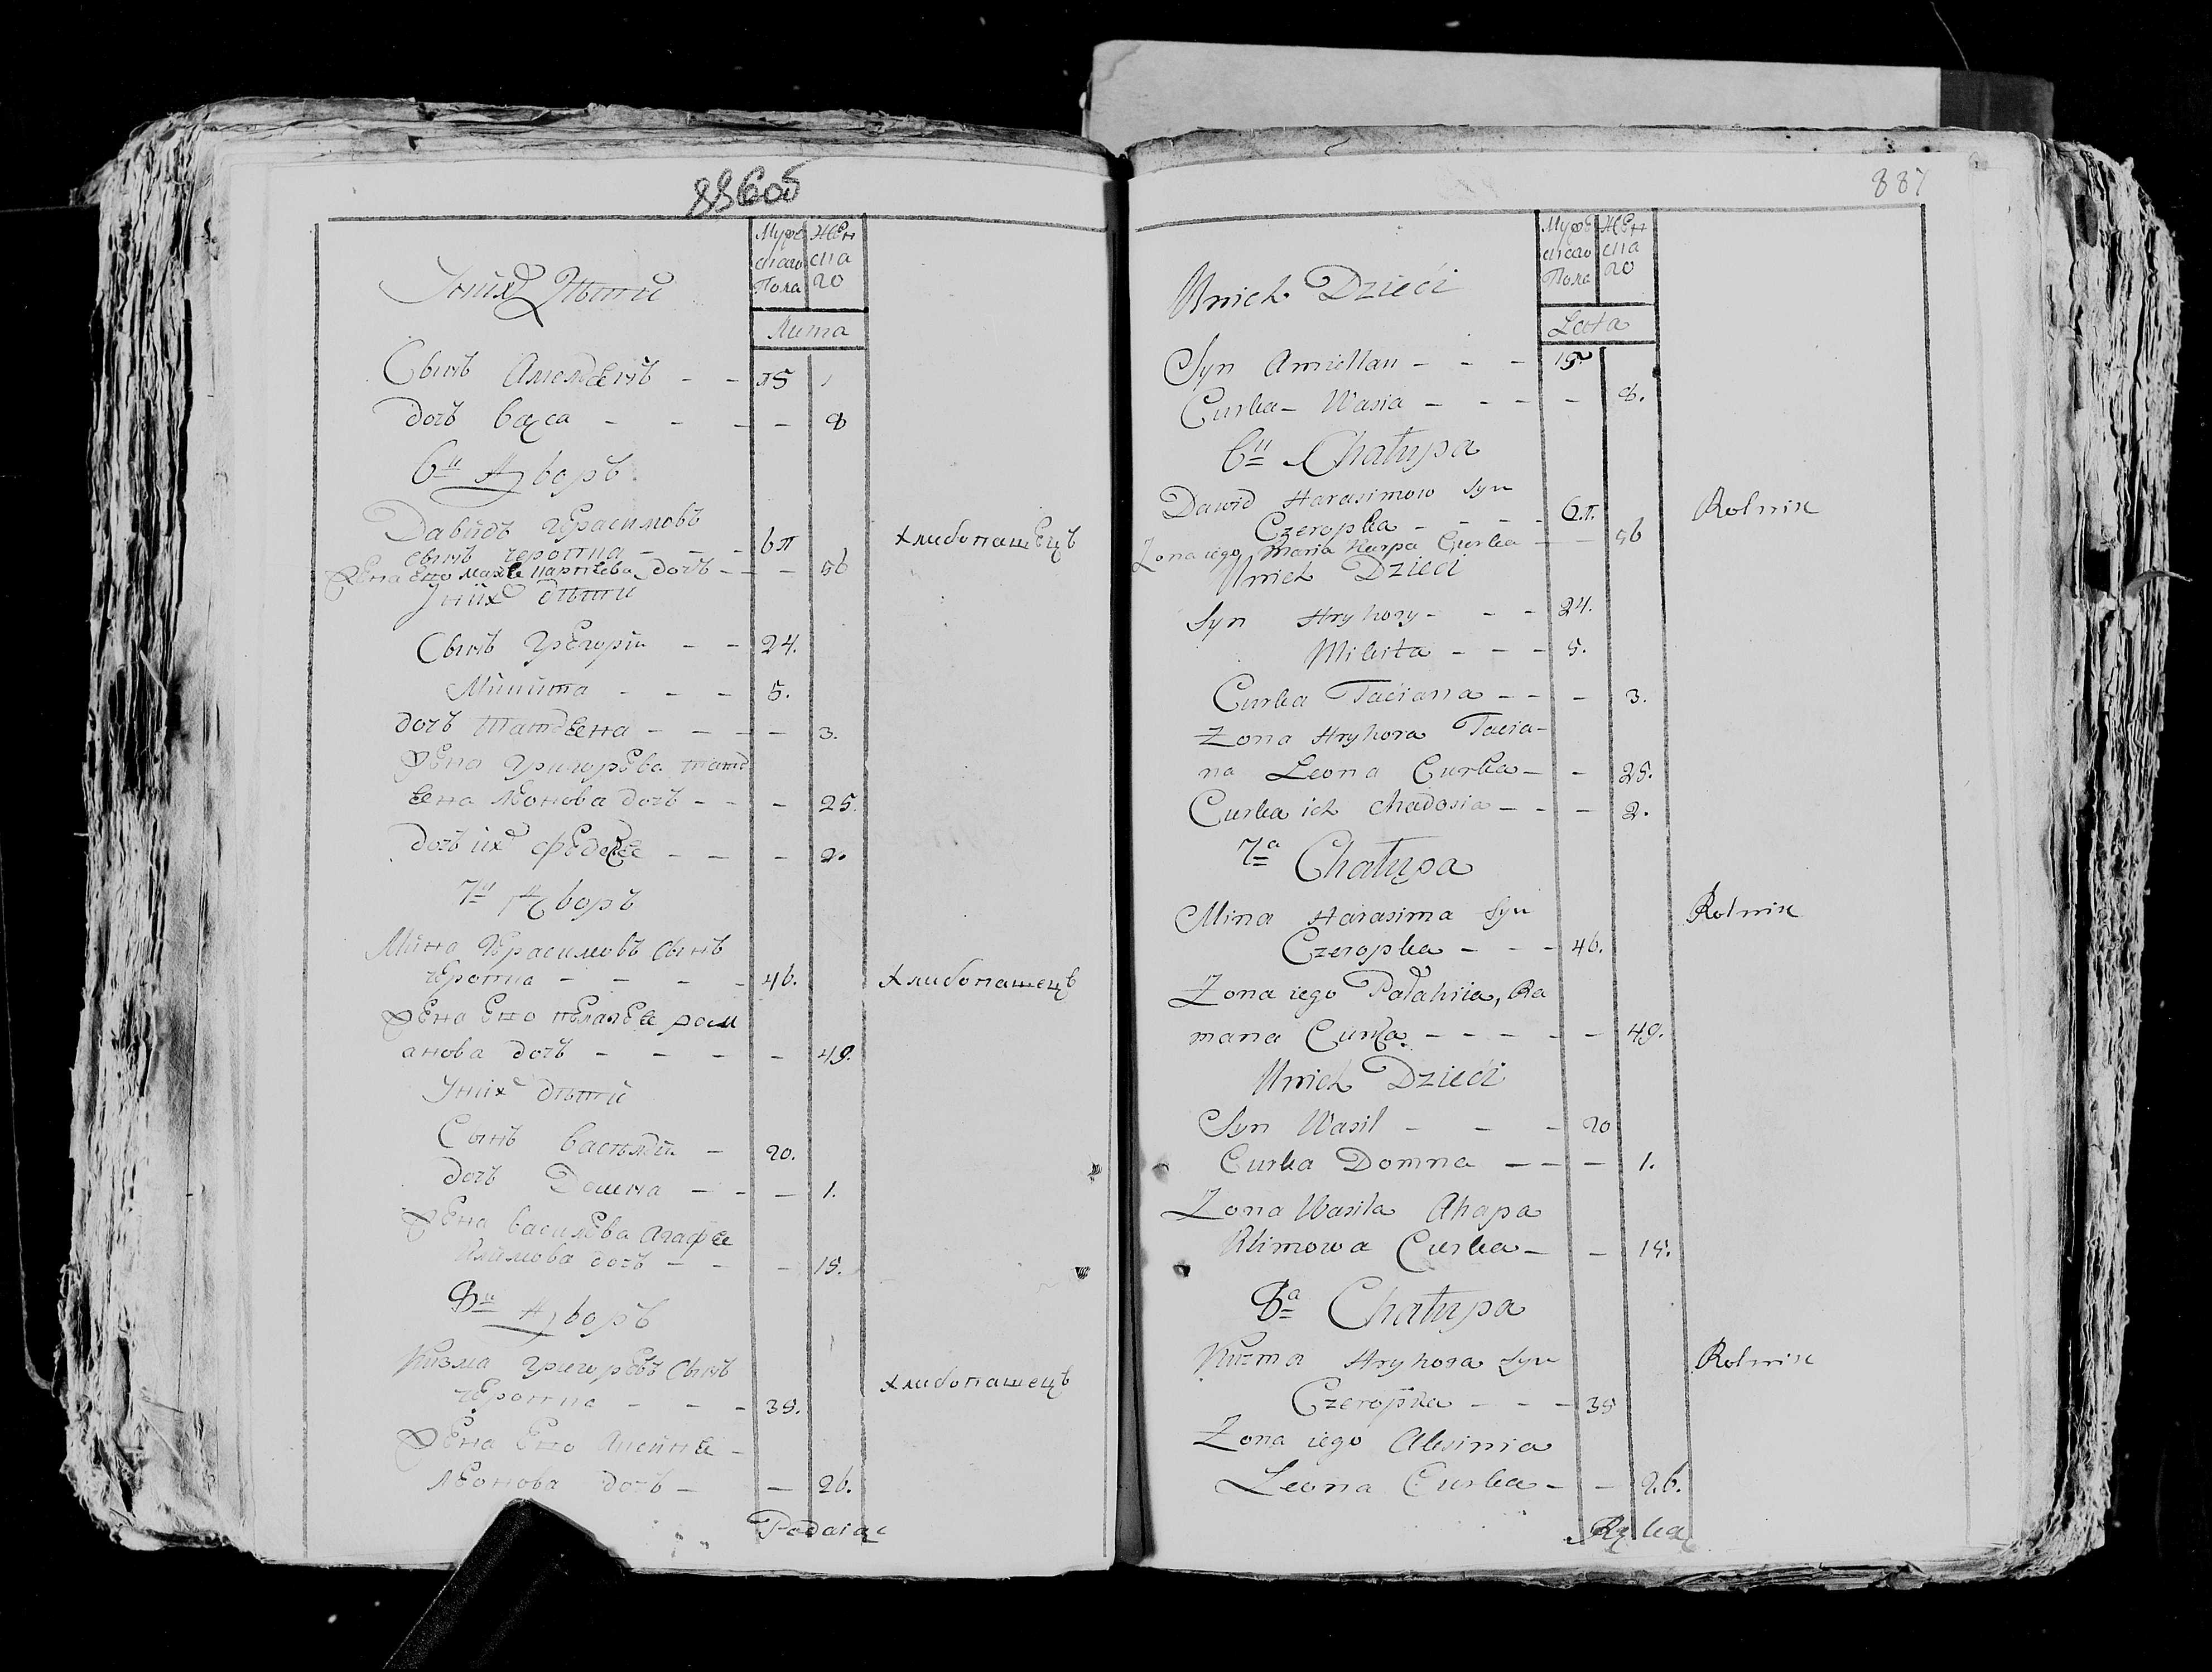 886об
Мужескаго Пола
Женскаго
У них Дѣти
Лѣта
Сынъ Амельянъ - - 15
Дочъ Вася - - - - 8
6й Дворъ
Давидъ Герасимовъ
сынъ черопка - - - 6π Хлибопашецъ
Жена его Маря Карпова Дочъ - - - 56
У них дѣти
Сынъ Григорiи - - 24.
Микита - - - 5.
дочъ татіяна - - - - 3.
Жена Григорьева тать
яна Леонова дочъ - - - 25.
дочъ их Федося - - - 2.
7й Дворъ
Мина Герасимовъ Сынъ
черопка - - - - 46. Хлибопашецъ
Жена его пелагея ром
анова дочъ - - - - 49.
У них дѣти
Сынъ Василiй - 20.
дочъ Домна - - - 1.
Жена василева Агафя
Климова дочъ - - - 15.
8й Дворъ
Кизма Григорьевъ Сынъ
черопка - - - 35. Хлибопашецъ
Жена его Аксиня -
леонова дочъ - - 26.
887
Мужескаго Пола
Женскаго
Wnich Dzieći
Lata
Syn Amiellan - - - 15
Curka - Wasia - - - - 8.
6ta Chałupa
Dawid Harasimow Syn Rolnik
Czeropka - - - - 6π.
Zona iego Maria Karpa Curka - - 56
Unich Dzieci
Syn Hryhory - - - 24.
Mikita - - - 5.
Curka Taciana - - - 3.
Zona Hryhora Tacia-
na Leona Curka - - 25.
Curka ich Chadosia - - - 2.
7a Chałupa
Mina Harasima Syn Rolnik
Czeropka - - - 46.
Zona iego Pałahiia, Ra
mana Curka - - - - - 49.
Unich Dzieći
Syn Wasil - - - 20
Curka Domna - - - 1.
Zona Wasila Ahapa
Klimowa Curka - - 15.
8a Chałupa
Kuzma Hryhora Syn Rolnik
Czeropka - - - 35
Zona iego Aksinia
Leona Curka - - 26.